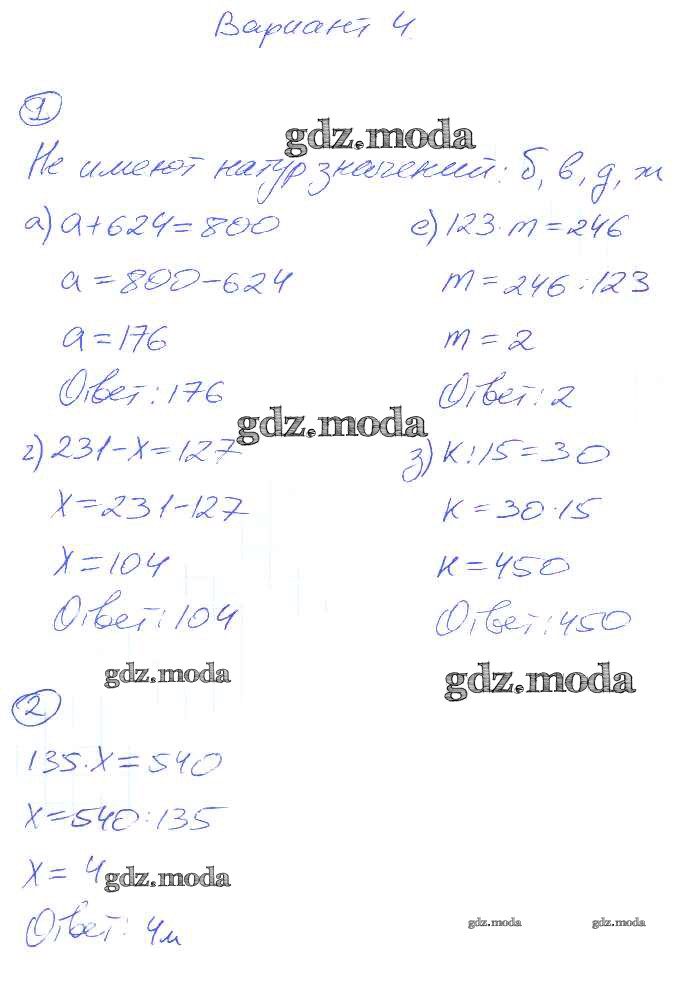 Вариант 4
1
gdz.moda
Не имеют натур значений: б, в, д, ж
а) a+624=800
a=800-624
a=176
Ответ: 176
е) 123·m=246
m=246:123
m=2
Ответ: 2
gdz.moda
г) 231-x=127
x=231-127
x=104
Ответ: 104
з) k:15=30
k=30·15
k=450
Ответ: 450
gdz.moda
gdz.moda
2
135·x=540
x=540:135
x=4
gdz.moda
Ответ: 4м
gdz.moda
gdz.moda